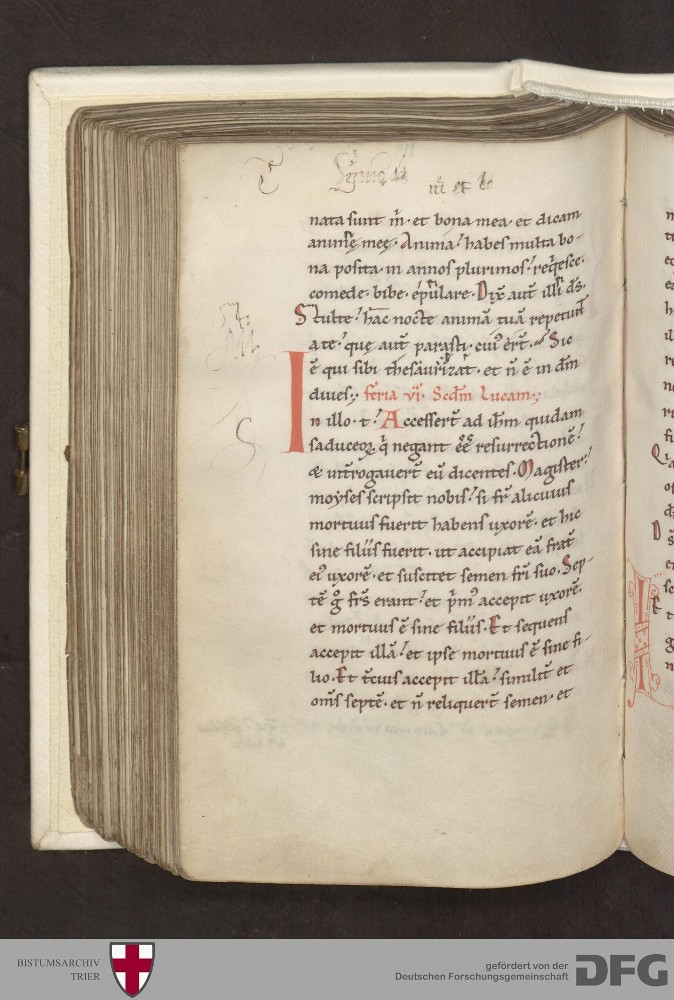 nata sunt m̄· et bona mea· et dicam
animȩ meȩ· Anima! habes multa bo-
na posita· in annos plurimos! reqͥesce·
comede· bibe· epulare· Dix̄ aut̄ illi d̄s·
Stulte! hac nocte animā tuā repetunt
a te! quȩ aut̄ parasti· cuiꝰ er̄t· Sic
ē qui sibi thesaurizat· et n̄ ē in dm̄
diues·, feria vi· Scdm̄ Lucam·,
In illo· t! Accesser̄t ad ihm̄ quidam
saduceoꝝ· q̄ negant ēē resurrectionē!
& int̄rogauer̄t eū dicentes· Magister!
moyses scripsit nobis! si fr̄ alicuius
mortuus fuerit habens uxorē· et hic
sine filiis fuerit· ut accipiat eā frat̄
eiꝰ uxorē· et suscitet semen fri suo· Sep-
tē gͦ frs̄ erant! et p̄mꝰ accepit uxorē·
et mortuus ē sine filiis· Et sequens
accepit illā! et ipse mortuus ē sine fi-
lio· Et t̄cius accepit illā! similit̄ et
om̄s septē· et n̄ reliquer̄t semen· et
BISTUMSARCHIV
TRIER
gefördert von der
Deutschen Forschungsgemeinschaft
DFG